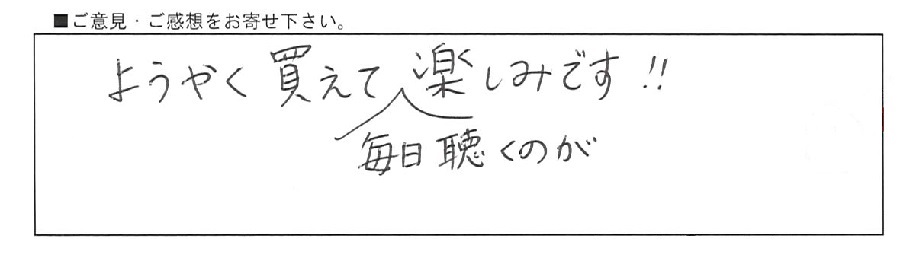 ■ご意見・ご感想をお寄せ下さい。
ようやく買えて楽しみです!!
毎日聴くのが